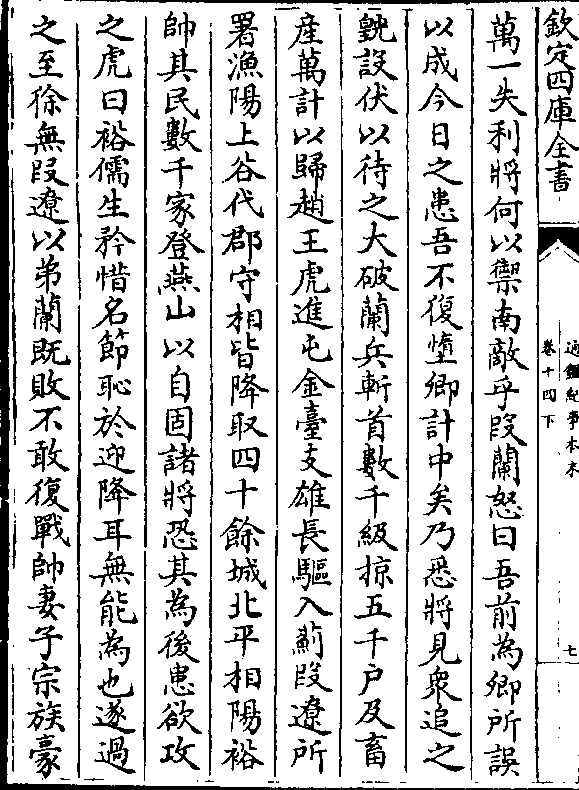 欽定四庫全書
通鑑紀事本末
卷十四下
七
萬一失利將何以禦南敵乎段蘭怒曰吾前為卿所誤
以成今日之患吾不復墮卿計中矣乃悉將見衆追之
皝設伏以待之大破蘭兵斬首數千級掠五千户及畜
產萬計以歸趙王虎進屯金臺支雄長驅入薊段遼所
署漁陽上谷代郡守相皆降取四十餘城北平相陽裕
帥其民數千家登燕山以自固諸將恐其為後患欲攻
之虎曰裕儒生矜惜名節恥於迎降耳無能為也遂過
之至徐無段遼以弟蘭既敗不敢復戰帥妻子宗族豪